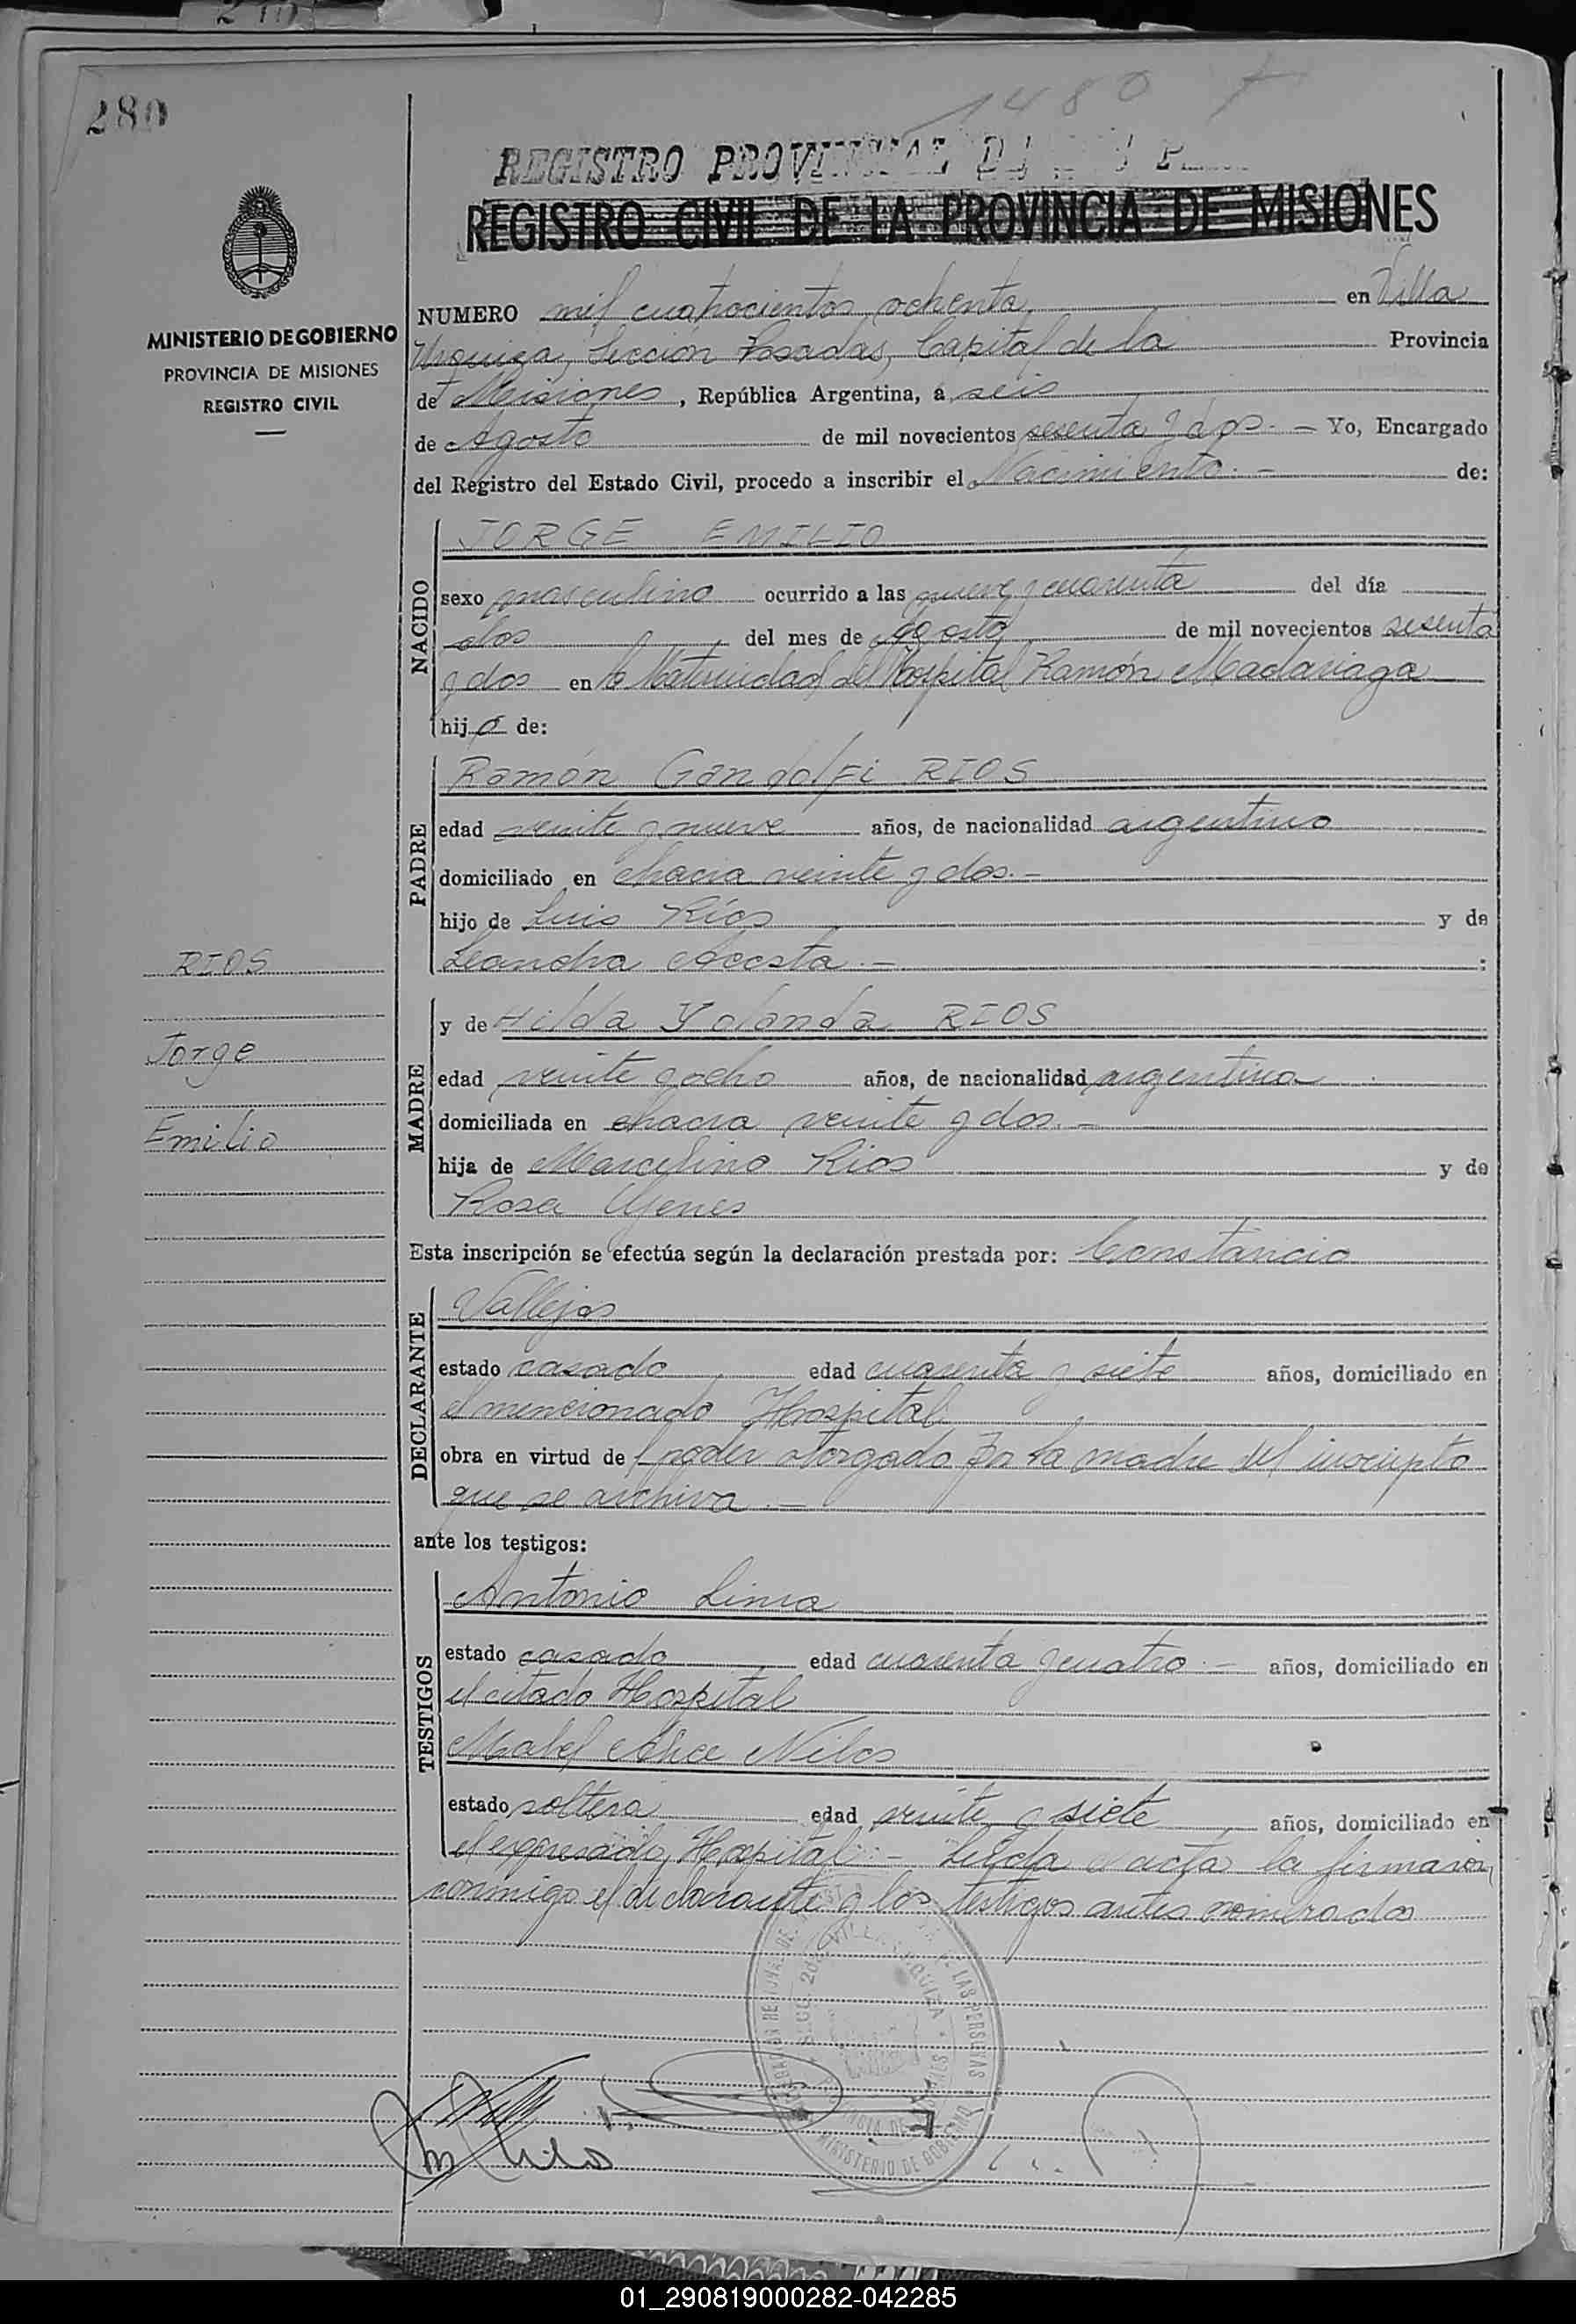 280
1480
REGISTRO PROVINCIAL
REGISTRO CIVIL DE LA PROVINCIA DE MISIONES
MINISTERIO DE GOBIERNO
PROVINCIA DE MISIONES
REGISTRO CIVIL
NUMERO mil cuatrocientos ochenta en Villa
Urquiza, Sección Posadas, Capital de la Provincia
de Misiones, República Argentina, a seis
de Agosto de mil novecientos sesenta y dos.- Yo, Encargado
del Registro del Estado Civil, procedo a inscribir el Nacimiento.- de:
NACIDO
JORGE EMILIO
sexo masculino ocurrido a las nueve y cuarenta del día
dos del mes de Agosto de mil novecientos sesenta
y dos en la Maternidad del Hospital Ramón Madariaga
hijo de:
PADRE
Ramón Gandolfi RIOS
edad veinte y nueve años, de nacionalidad argentino
domiciliado en chacra veinte y dos.-
hijo de Luis Ríos y de
Leandra Acosta.- :
RIOS
Jorge
Emilio
MADRE
y de Hilda Yolanda RIOS
edad veinte y ocho años, de nacionalidad argentina
domiciliada en chacra veinte y dos.-
hija de Marcelino Rios y de
Rosa Yenes
Esta inscripción se efectúa según la declaración prestada por: Constancio
DECLARANTE
Vallejos
estado casado edad cuarenta y siete años, domiciliado en
el mencionado Hospital
obra en virtud de poder otorgado por la madre del inscripto
que se archiva.-
ante los testigos:
TESTIGOS
Antonio Lima
estado casado edad cuarenta y cuatro.- años, domiciliado en
el citado Hospital
Mabel Alice Nilos
estado soltera edad veinte y siete años, domiciliado en
el expresado Hospital.- Leída el acta la firmaron
conmigo el declarante y los testigos antes nombrados
SECC. 2da. VILLA URQUIZA
DE LAS PERSONAS
MINISTERIO DE GOBIERNO
01_290819000282-042285